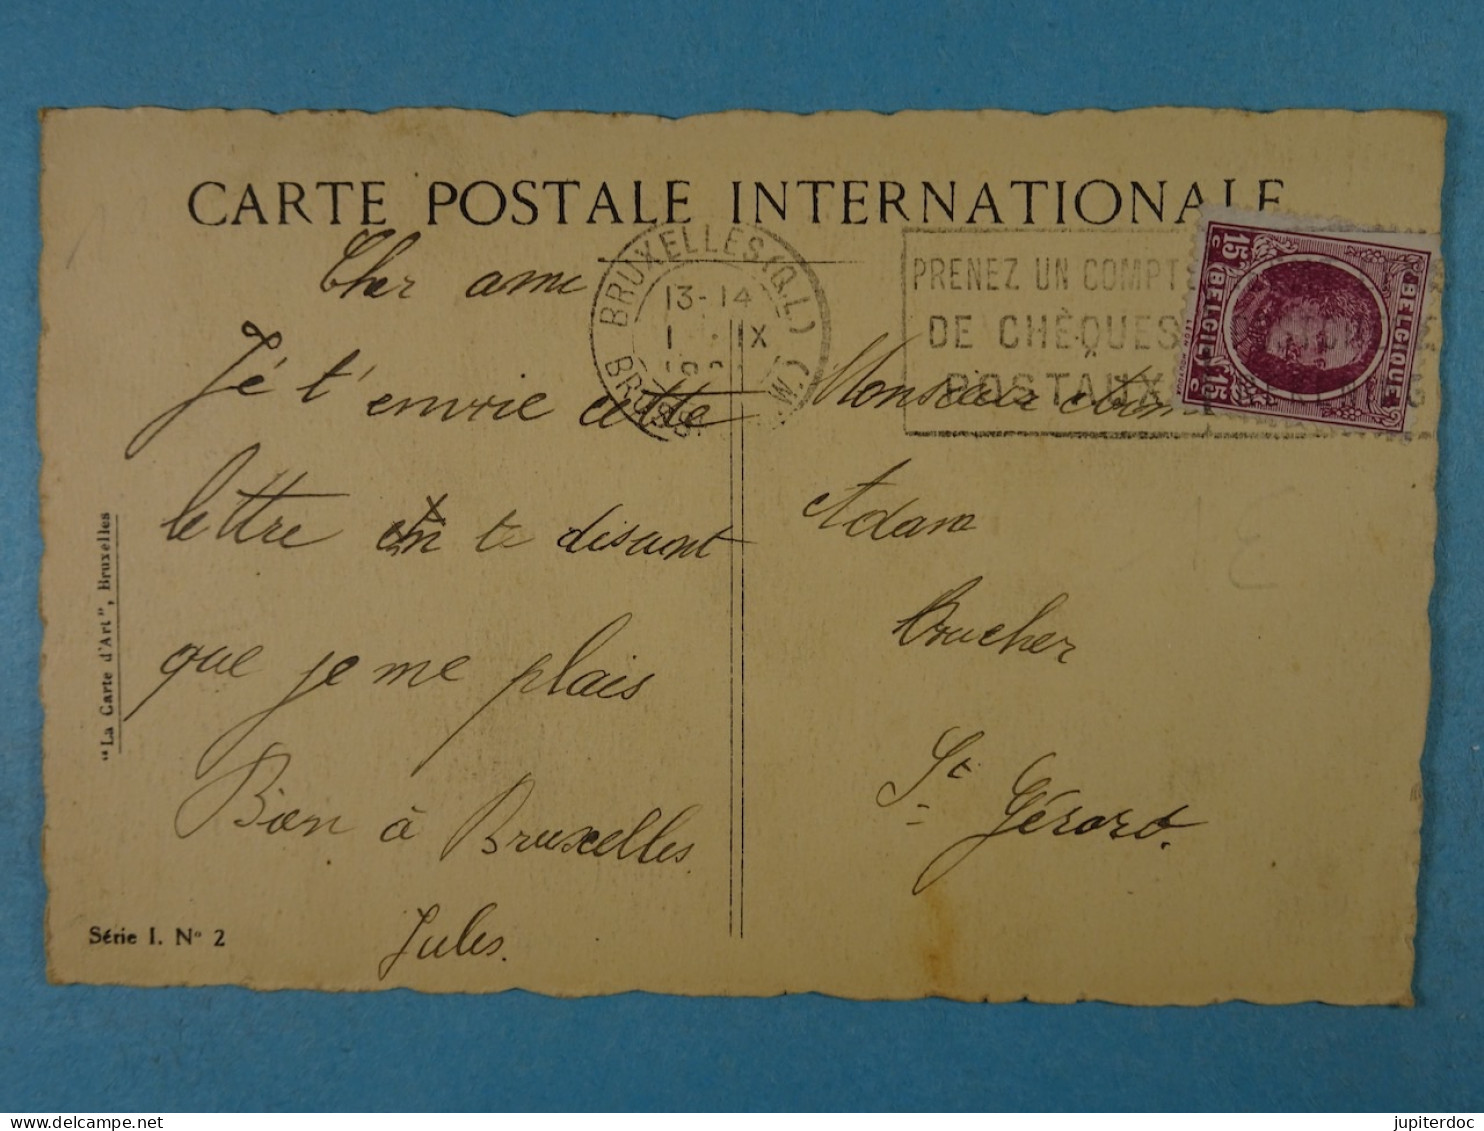 CARTE POSTALE INTERNATIONALE
Cher ami
Jé t'envoie cette
lettre en te disant
que je me plais
Bien à Bruxelles
Jules.
BRUXELLES (Q.L.)
13-14
1 IX
BRUSSEL (W.
PRENEZ UN COMPTE
DE CHÈQUES
POSTAUX
15c BELGIE BELGIQUE 15c
Monsieur
Adam
Boucher
St Gérard.
"La Carte d'Art", Bruxelles
Série I. N° 2
jupiterdoc